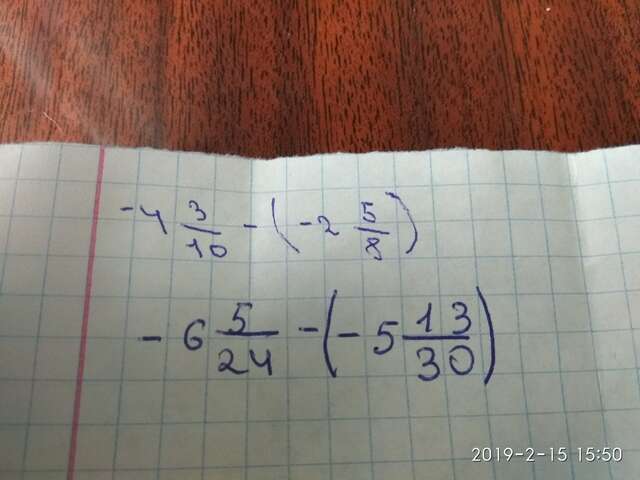 -4 3/10 - (-2 5/8)
- 6 5/24 - (- 5 13/30)
2019-2-15 15:50